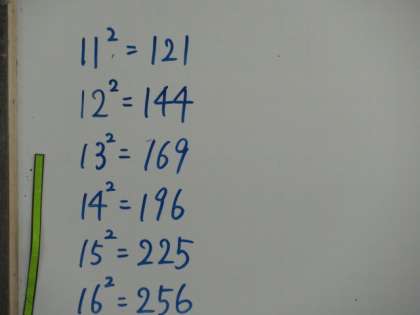 11² = 121
12² = 144
13² = 169
14² = 196
15² = 225
16² = 256